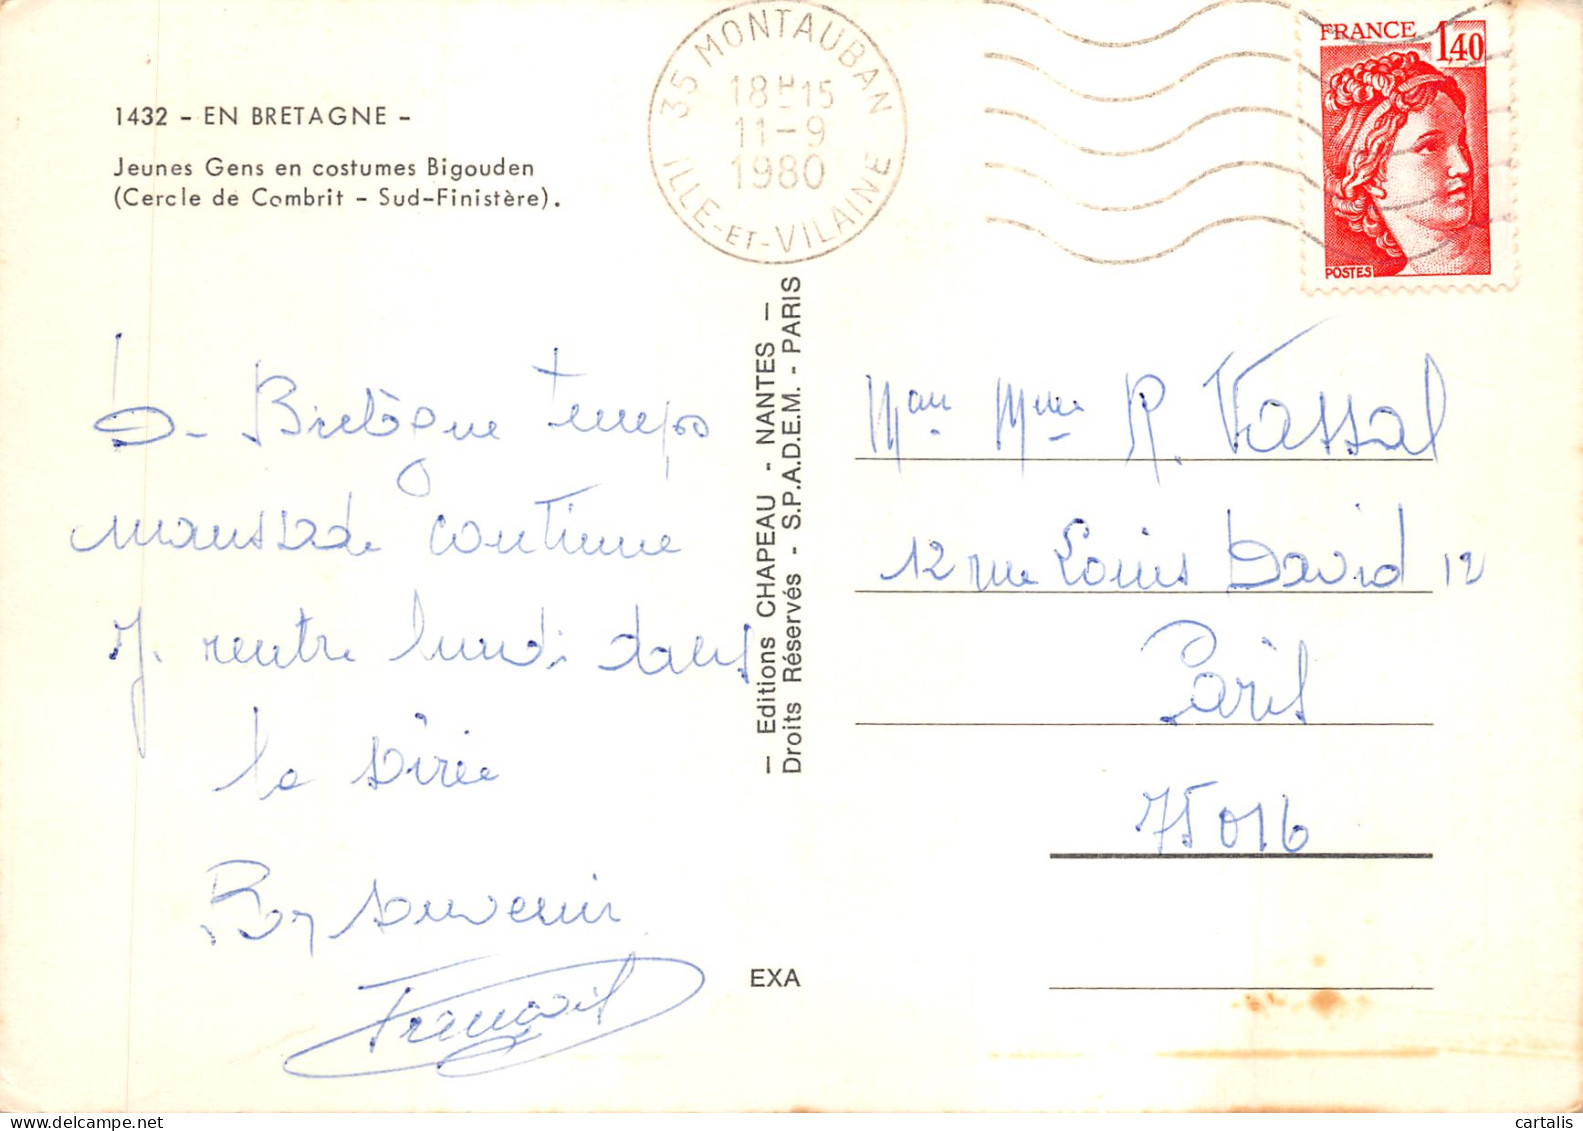 1432 - EN BRETAGNE -
Jeunes Gens en costumes Bigouden
(Cercle de Combrit - Sud-Finistère).
35 MONTAUBAN
18H15
11-9
1980
ILLE-ET-VILAINE
FRANCE 1,40
POSTES
Bretagne temps
maussade continue
J. rentre lundi dans
la sirée
souvenir
François
— Editions CHAPEAU - NANTES —
Droits Réservés - S.P.A.D.E.M. - PARIS
EXA
Mme R. Vassal
12 rue Louis David 12
Paris
75016
cartalis